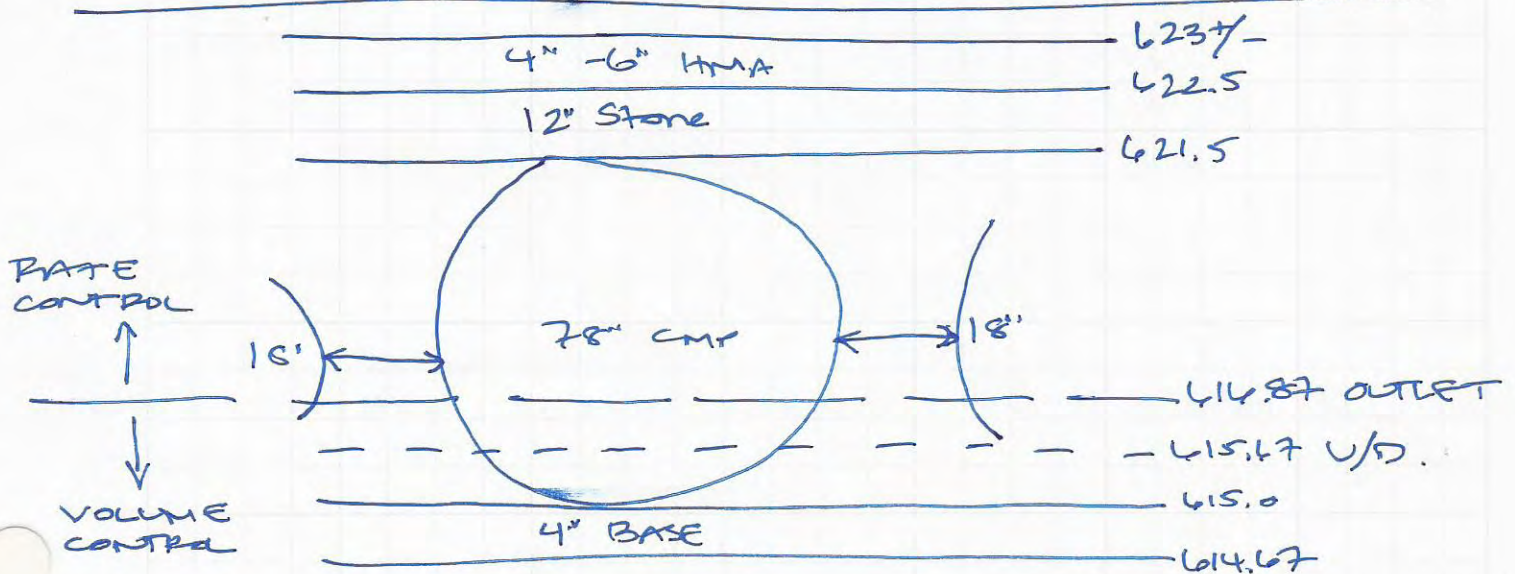 623+/-
4" -6" HMA
622.5
12" Stone
621.5
RATE
CONTROL
18"
78" CMP
18"
616.87 OUTLET
615.67 U/D.
VOLUME
CONTROL
615.0
4" BASE
614.67